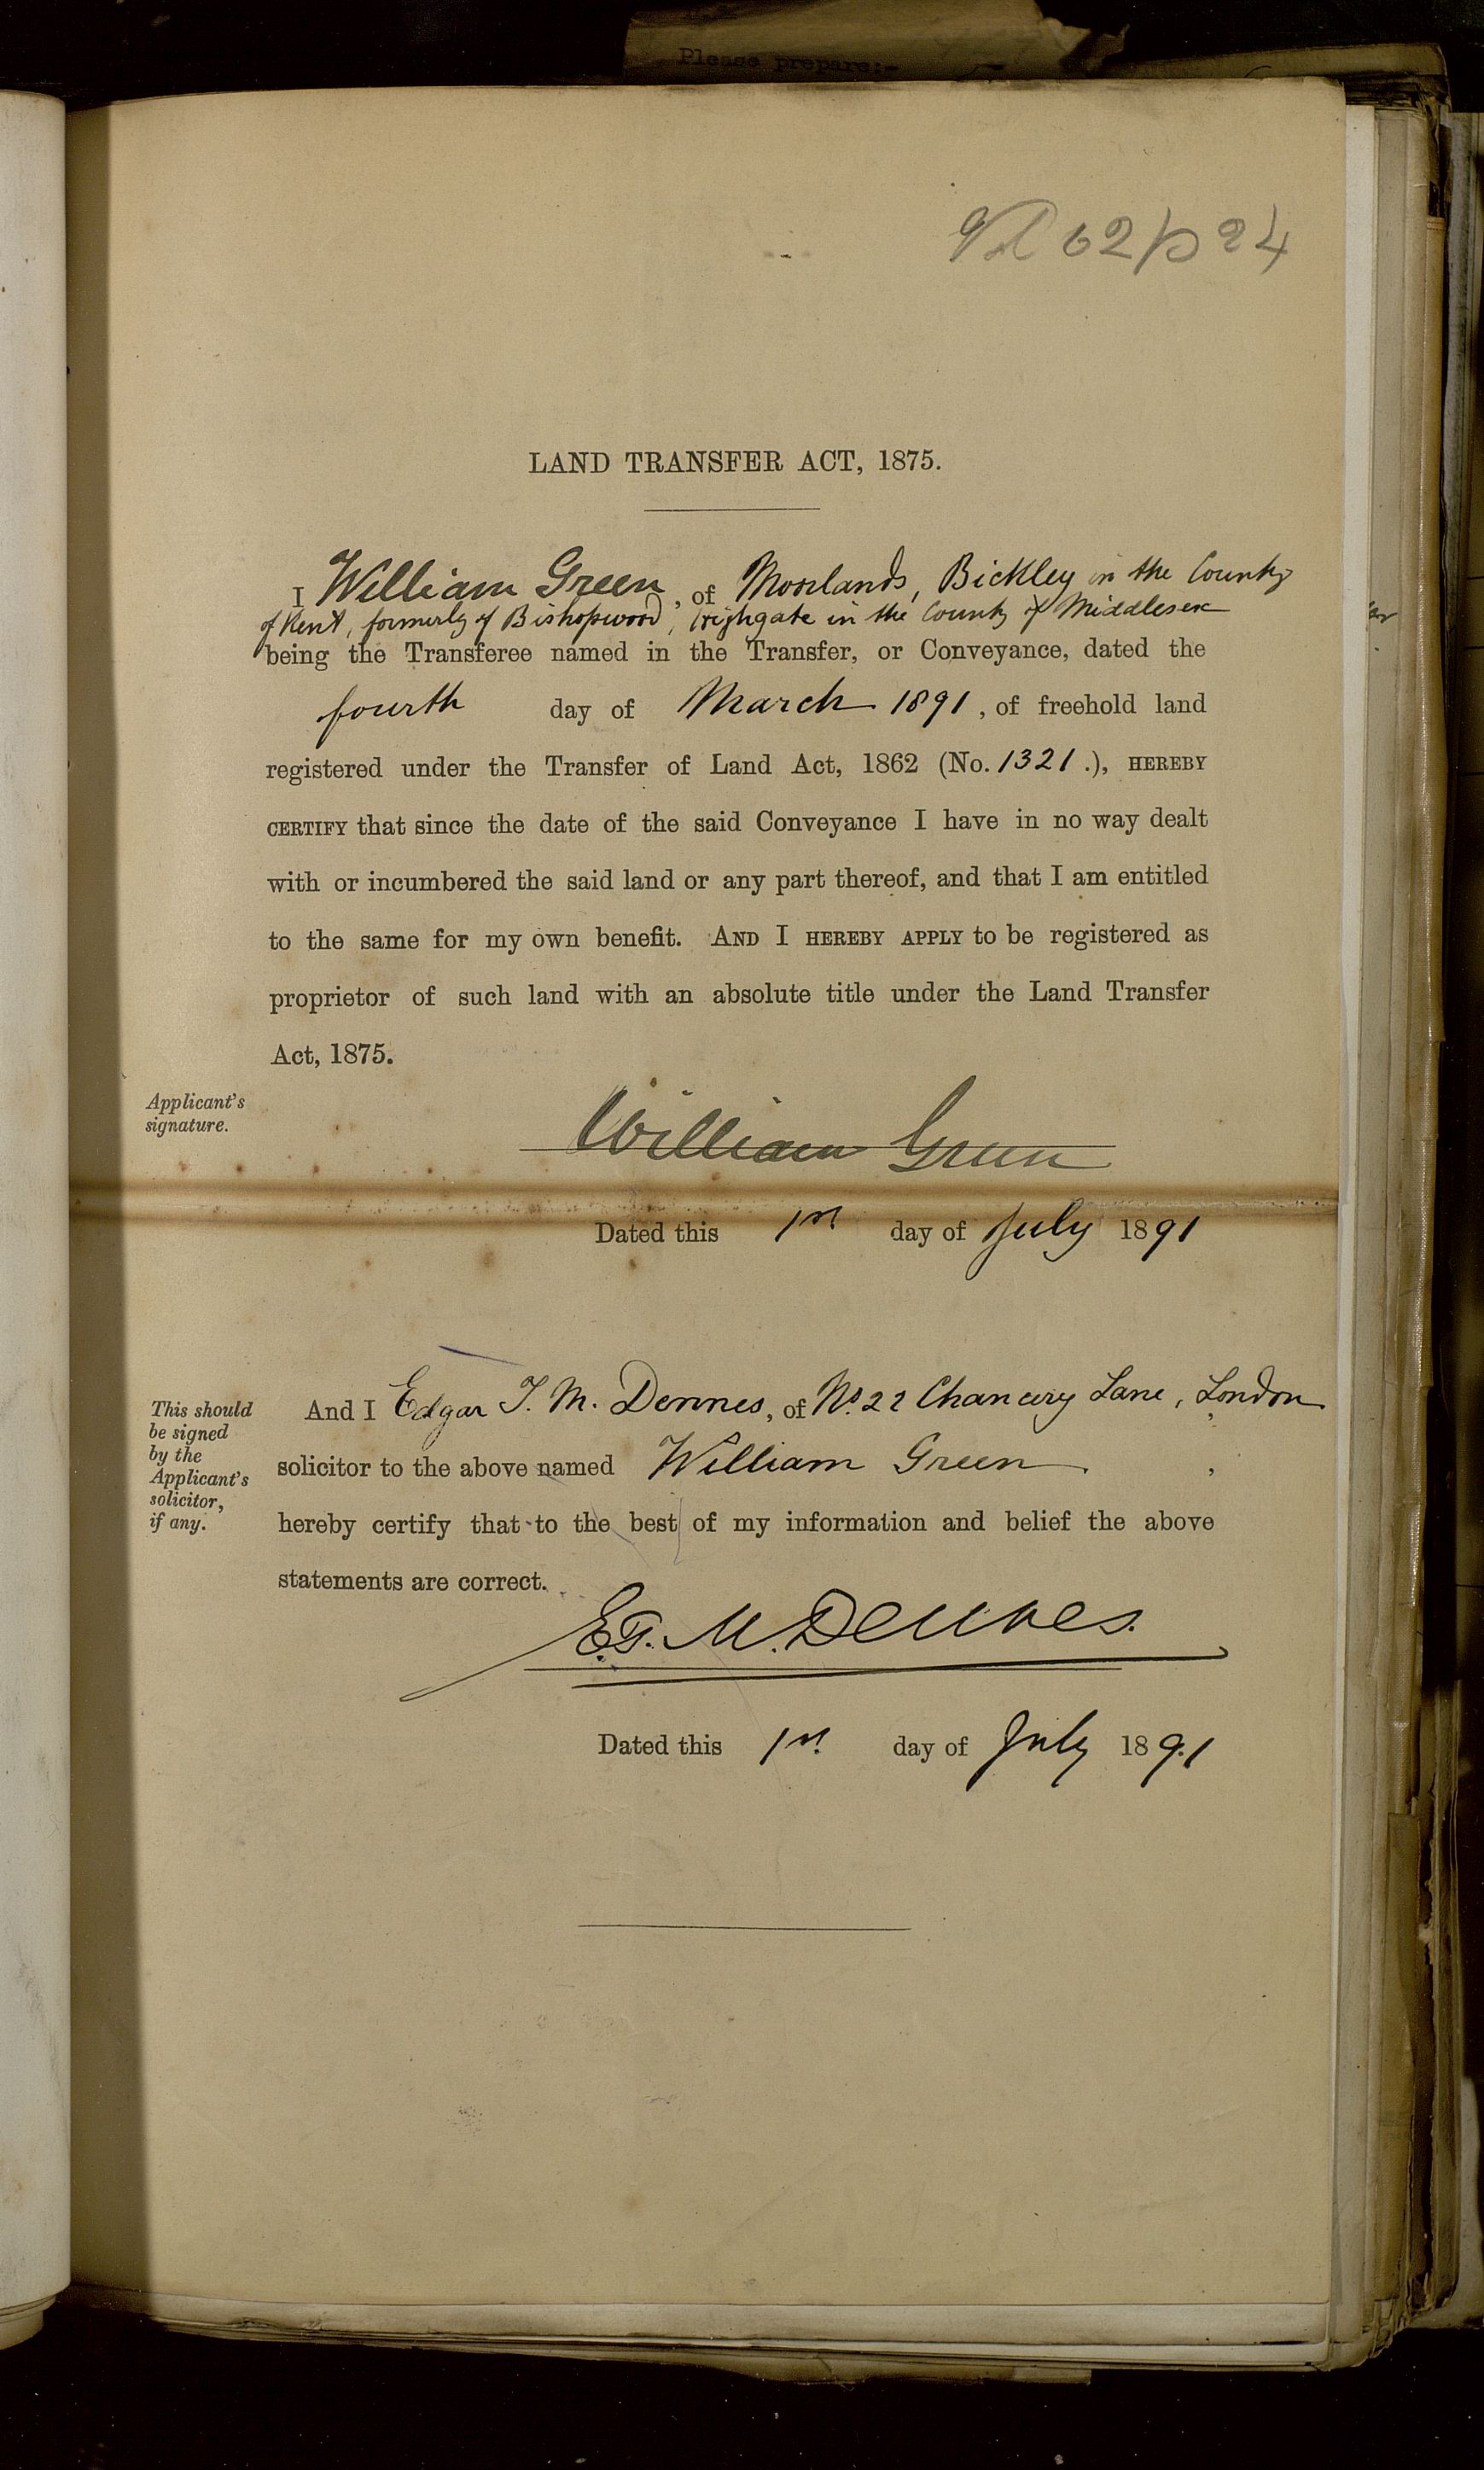 Please prepare:-
Vol 62 p 24
LAND TRANSFER ACT, 1875.
I William Green, of Moorlands, Bickley in the County
of Kent, formerly of Bishopwood, Highgate in the County of Middlesex
being the Transferee named in the Transfer, or Conveyance, dated the
fourth day of March 1891, of freehold land
registered under the Transfer of Land Act, 1862 (No. 1321.), HEREBY
CERTIFY that since the date of the said Conveyance I have in no way dealt
with or incumbered the said land or any part thereof, and that I am entitled
to the same for my own benefit. AND I HEREBY APPLY to be registered as
proprietor of such land with an absolute title under the Land Transfer
Act, 1875.
Applicant's
signature.
William Green
Dated this 1st day of July 1891
This should
be signed
by the
Applicant's
solicitor,
if any.
And I Edgar T. M. Dennes, of No. 22 Chancery Lane, London
solicitor to the above named William Green,
hereby certify that to the best of my information and belief the above
statements are correct.
E.T. M. Dennes.
Dated this 1st day of July 1891